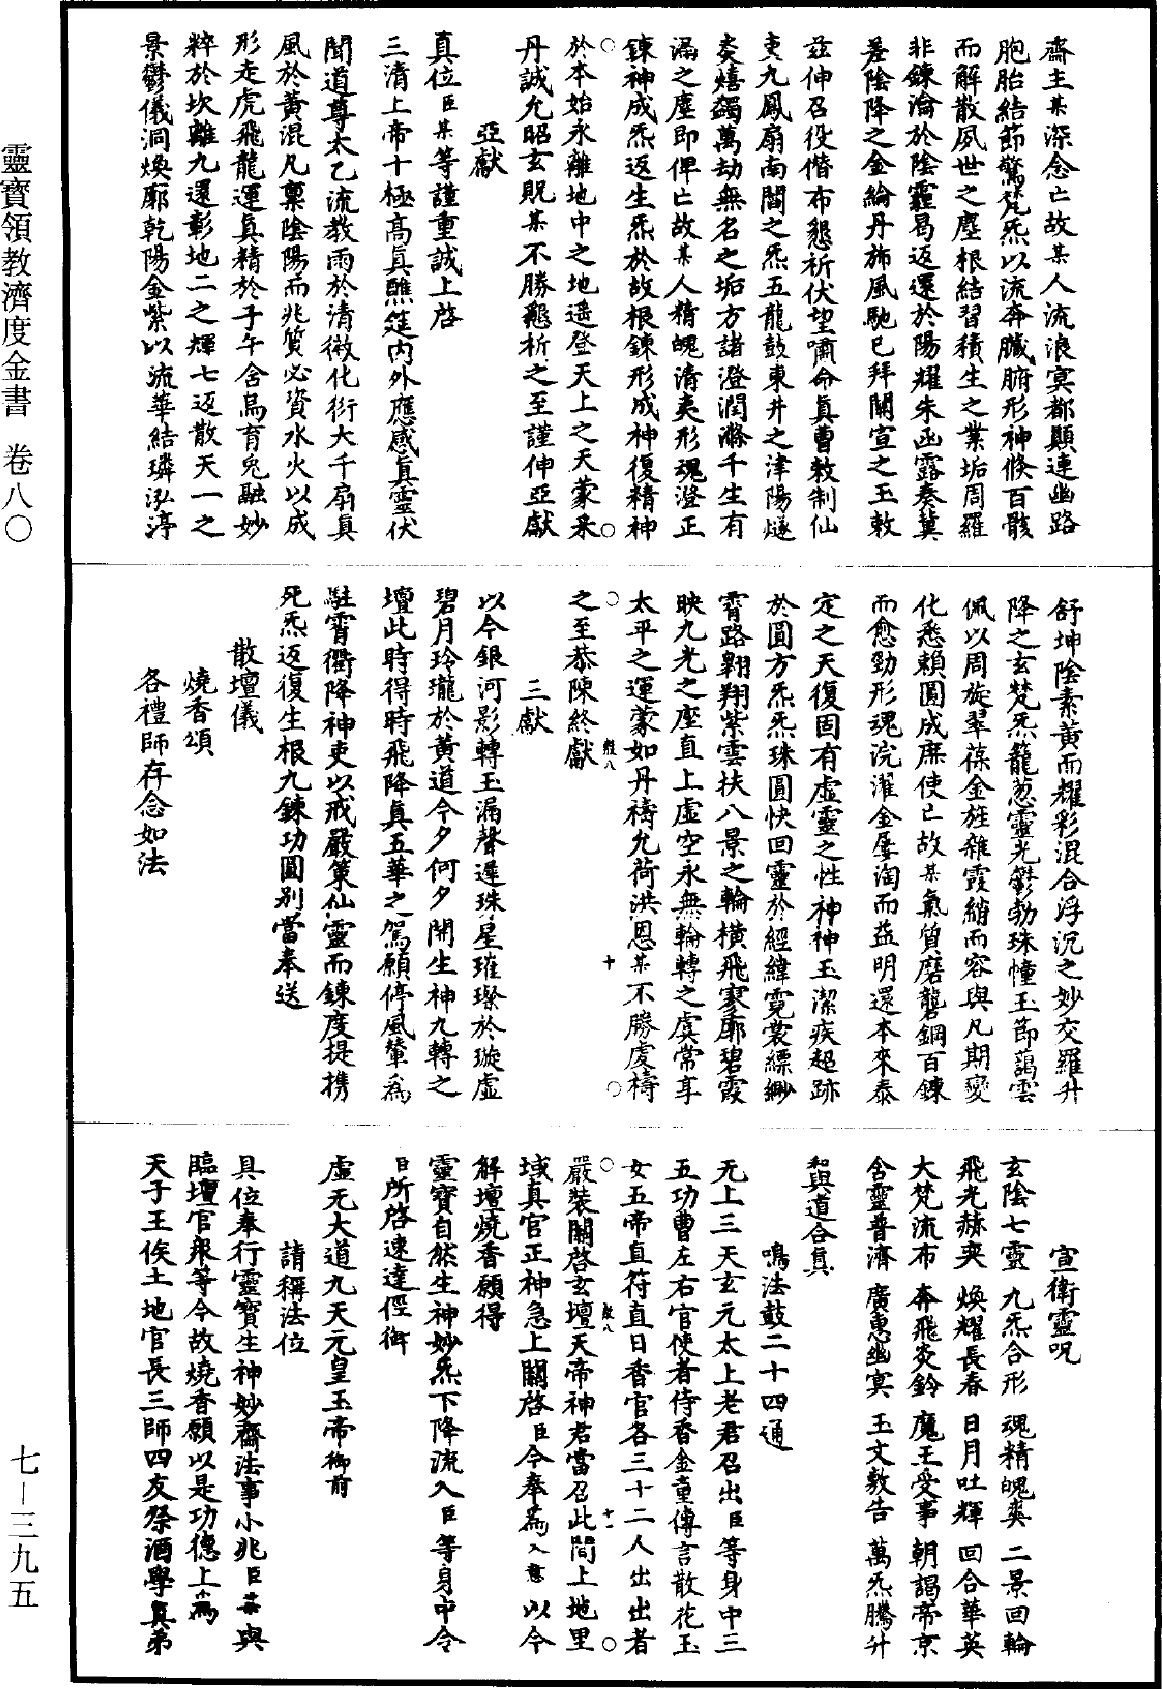 靈寶領教濟度金書 卷八〇
七—三九五
齋主某深念亡故某人流浪冥都顛連幽路
胞胎結節驚梵炁以流奔臟腑形神倏百骸
而解散夙世之塵根結習積生之業垢周羅
非鍊淪於陰霾曷返還於陽耀朱函露奏冀
差陰降之金綸丹斾風馳已拜關宣之玉敕
茲伸召役偕布懇祈伏望嘯命真曹敕制仙
吏九鳳扇南閶之炁五龍鼓東井之津陽燧
炎熺蠲萬劫無名之垢方諸澄潤滌千生有
漏之塵即俾亡故某人精魄清夷形魂澄正
鍊神成炁返生炁於故根鍊形成神復精神
於本始永離地中之地遙登天上之天蒙釆
丹誠允昭玄貺某不勝懇祈之至謹伸亞獻
亞獻
真位臣某等謹重誠上啓
三清上帝十極高真醮筵內外應感真靈伏
聞道尊太乙流教雨於清微化衍大千扇真
風於黃混凡稟陰陽而兆質必資水火以成
形走虎飛龍運真精於子午含烏育兔融妙
粹於坎離九還彰地二之輝七返散天一之
景鬱儀洞煥廓乾陽金紫以流華結璘泓渟
舒坤陰素黃而耀彩混合浮沉之妙交羅升
降之玄梵炁籠葱靈光鬱勃珠幢玉節藹雲
佩以周旋翠葆金旌雜霞綃而容與凡期變
化悉賴圓成庶使亡故某氣質磨礱鋼百鍊
而愈勁形魂浣濯金屢淘而益明還本來泰
定之天復固有虛靈之性神神玉潔疾超跡
於圓方炁炁珠圓快回靈於經緯霓裳縹緲
霄路翱翔紫雲扶八景之輪橫飛寥廓碧霞
映九光之座直上虛空永無輪轉之虞常享
太平之運蒙如丹禱允荷洪恩某不勝虔禱
之至恭陳終獻
三獻
以今銀河影轉玉漏聲遲珠星璀璨於璇虛
碧月玲瓏於黃道今夕何夕開生神九轉之
壇此時得時飛降真五華之駕願停風輦為
駐霄衢降神吏以戒嚴策仙靈而鍊度提携
死炁返復生根九鍊功圓別當奉送
散壇儀
燒香頌
各禮師存念如法
宣衛靈呪
玄陰七靈 九炁合形 魂精魄爽 二景回輪
飛光赫奕 煥耀長春 日月吐輝 回合華英
大梵流布 奔飛炎鈴 魔王受事 朝謁帝京
含靈普濟 廣惠幽冥 玉文敷告 萬炁騰升
和與道合真
鳴法鼓二十四通
无上三天玄元太上老君召出臣等身中三
五功曹左右官使者侍香金童傳言散花玉
女五帝直符直日香官各三十二人出出者
嚴裝關啓玄壇天帝神君當召此間土地里
域真官正神急上關啓臣今奉為入意以今
解壇燒香願得
靈寶自然生神妙炁下降流入臣等身中令
臣所啓速達徑御
虛无大道九天元皇玉帝御前
請稱法位
具位奉行靈寶生神妙齋法事小兆臣某與
臨壇官衆等今故燒香願以是功德上為
天子王侯土地官長三師四友祭酒學真弟